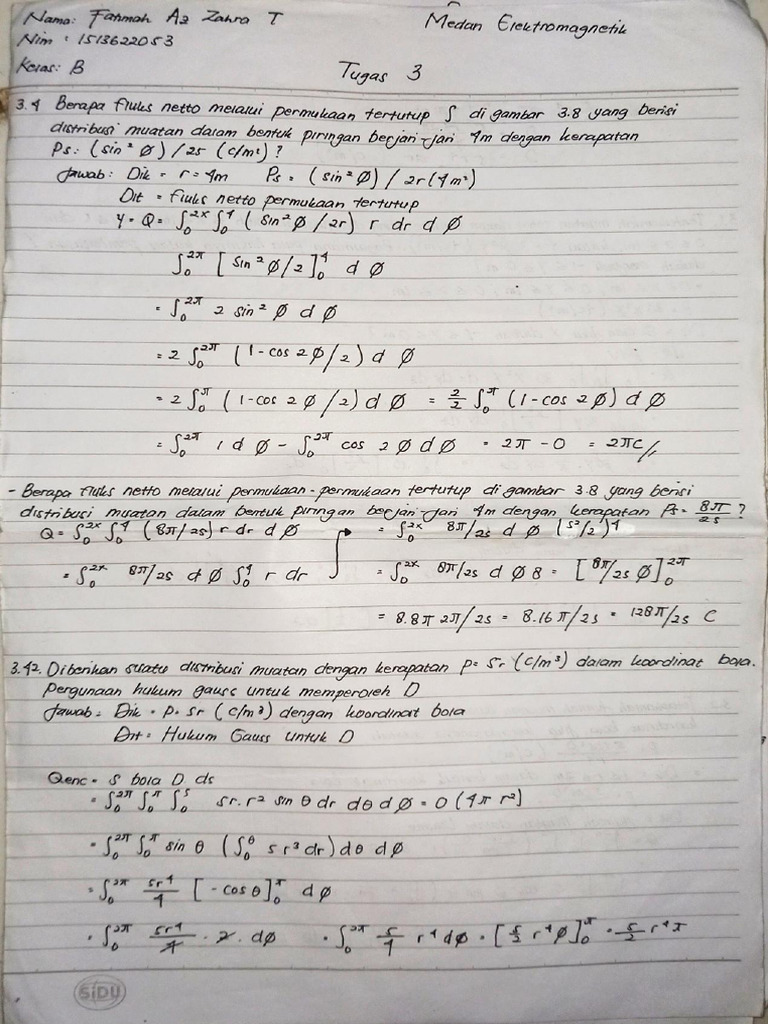 Nama: Fatimah Az Zahra T
Medan Elektromagnetik
Nim : 1513622053
Kelas: B
Tugas 3
3.4 Berapa fluks netto melalui permukaan tertutup S di gambar 3.8 yang berisi
distribusi muatan dalam bentuk piringan berjari-jari 4m dengan kerapatan
Ps: (sin² ∅) / 2s (c/m²) ?
Jawab: Dik = r = 4m Ps = (sin² ∅) / 2r (4m²)
Dit = fluks netto permukaan tertutup
Ψ = Q = ∫₀^2π ∫₀^4 (sin² ∅ / 2r) r dr d ∅
∫₀^2π [sin² ∅/2]₀^4 d ∅
= ∫₀^2π 2 sin² ∅ d ∅
= 2 ∫₀^2π (1-cos 2∅/2) d ∅
= 2 ∫₀^π (1-cos 2∅/2) d ∅ = 2/2 ∫₀^π (1-cos 2∅) d ∅
= ∫₀^2π 1 d ∅ - ∫₀^2π cos 2 ∅ d ∅ = 2π - 0 = 2πC//
- Berapa fluks netto melalui permukaan-permukaan tertutup di gambar 3.8 yang berisi
distribusi muatan dalam bentuk piringan berjari-jari 4m dengan kerapatan Ps = 8π/2s ?
Q = ∫₀^2π ∫₀^4 (8π/2s) r dr d ∅
= ∫₀^2π 8π/2s d ∅ ∫₀^4 r dr
= ∫₀^2π 8π/2s d ∅ (s²/2)^4
= ∫₀^2π 8π/2s d ∅ 8 = [8π/2s ∅]₀^2π
= 8.8π 2π/2s = 8.16π/2s = 128π/2s C
3.42. Diberikan suatu distribusi muatan dengan kerapatan p= 5r (c/m³) dalam koordinat bola.
Pergunaan hukum gauss untuk memperoleh D
Jawab = Dik = p = 5r (c/m³) dengan koordinat bola
Dit = Hukum Gauss untuk D
Qenc = S bola D ds
= ∫₀^2π ∫₀^π ∫₀^5 5r. r² sin θ dr dθ d∅ = 0 (4π r²)
= ∫₀^2π ∫₀^π sin θ (∫₀^θ 5 r³ dr) dθ d∅
= ∫₀^2π 5r⁴/4 [-cos θ]₀^π d∅
= ∫₀^2π 5r⁴/4 . 2 . d∅ = ∫₀^2π 5/4 r⁴ d∅ = [5/2 r⁴∅]₀^π = 5/2 r⁴π
SiDU